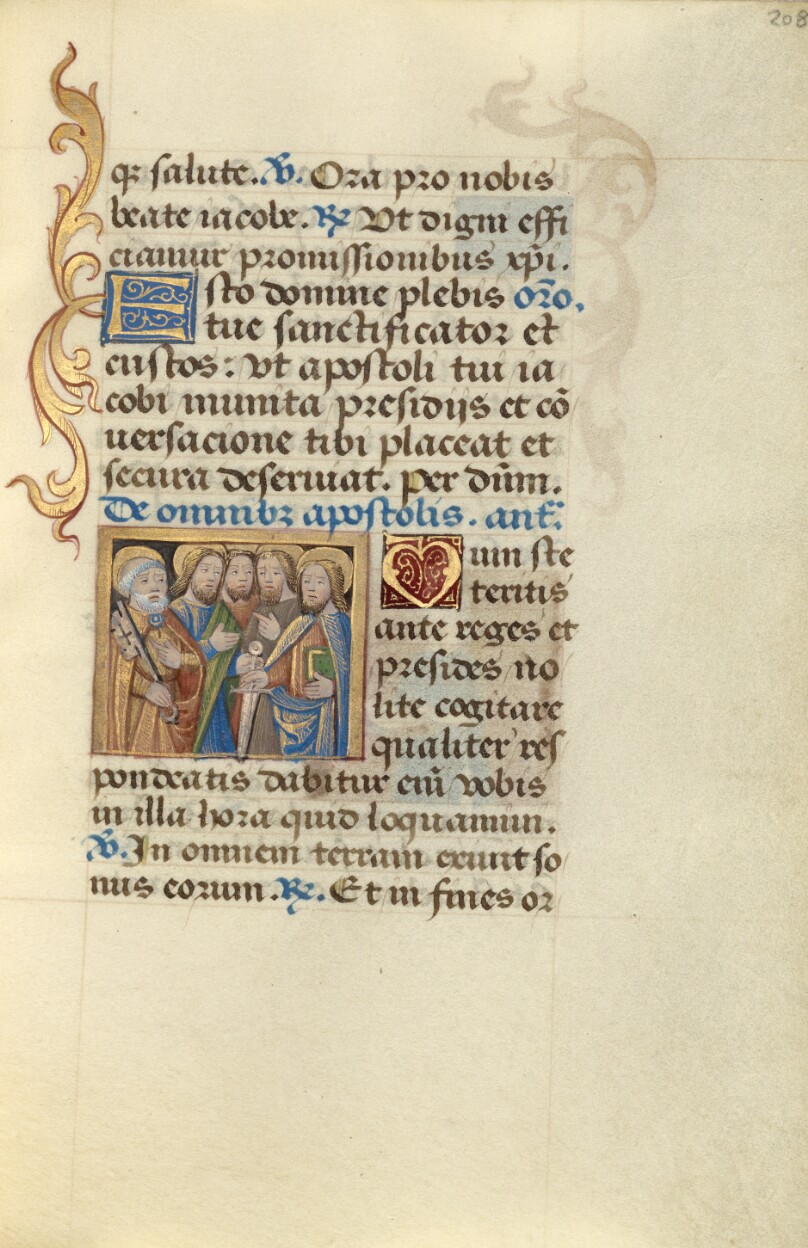 208
qꝫ salute. ℣. Ora pro nobis
beate iacobe. ℟ Vt digni effi
ciamur promissionibus xp̄i.
Esto domine plebis or̄o.
tue sanctificator et
custos: vt apostoli tui ia
cobi munita presidijs et cō
uersacione tibi placeat et
secura deseruiat. per dūm.
De omnibꝫ apostolis. ant̄.
Dum ste
teritis
ante reges et
presides no
lite cogitare
qualiter res
pondeatis dabitur eni̅ vobis
in illa hora quid loquamini.
℣. In omnem terram exiuit so
nus eorum. ℟. Et in fines or